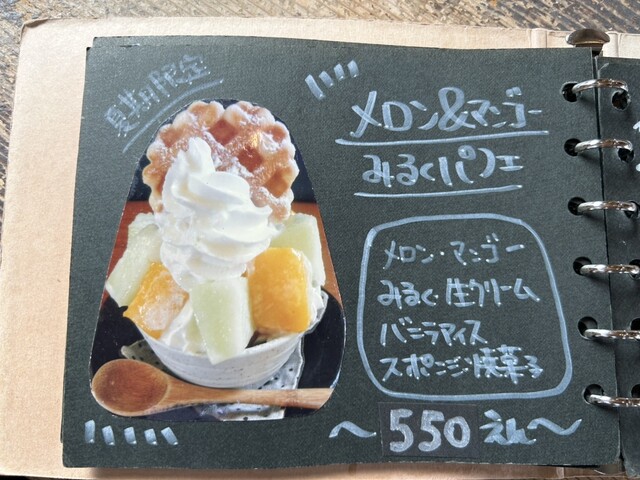 夏期限定
メロン&マンゴー
みるくパフェ
メロン・マンゴー
みるく・生クリーム
バニラアイス
スポンジ・焼菓子
〜550えん〜